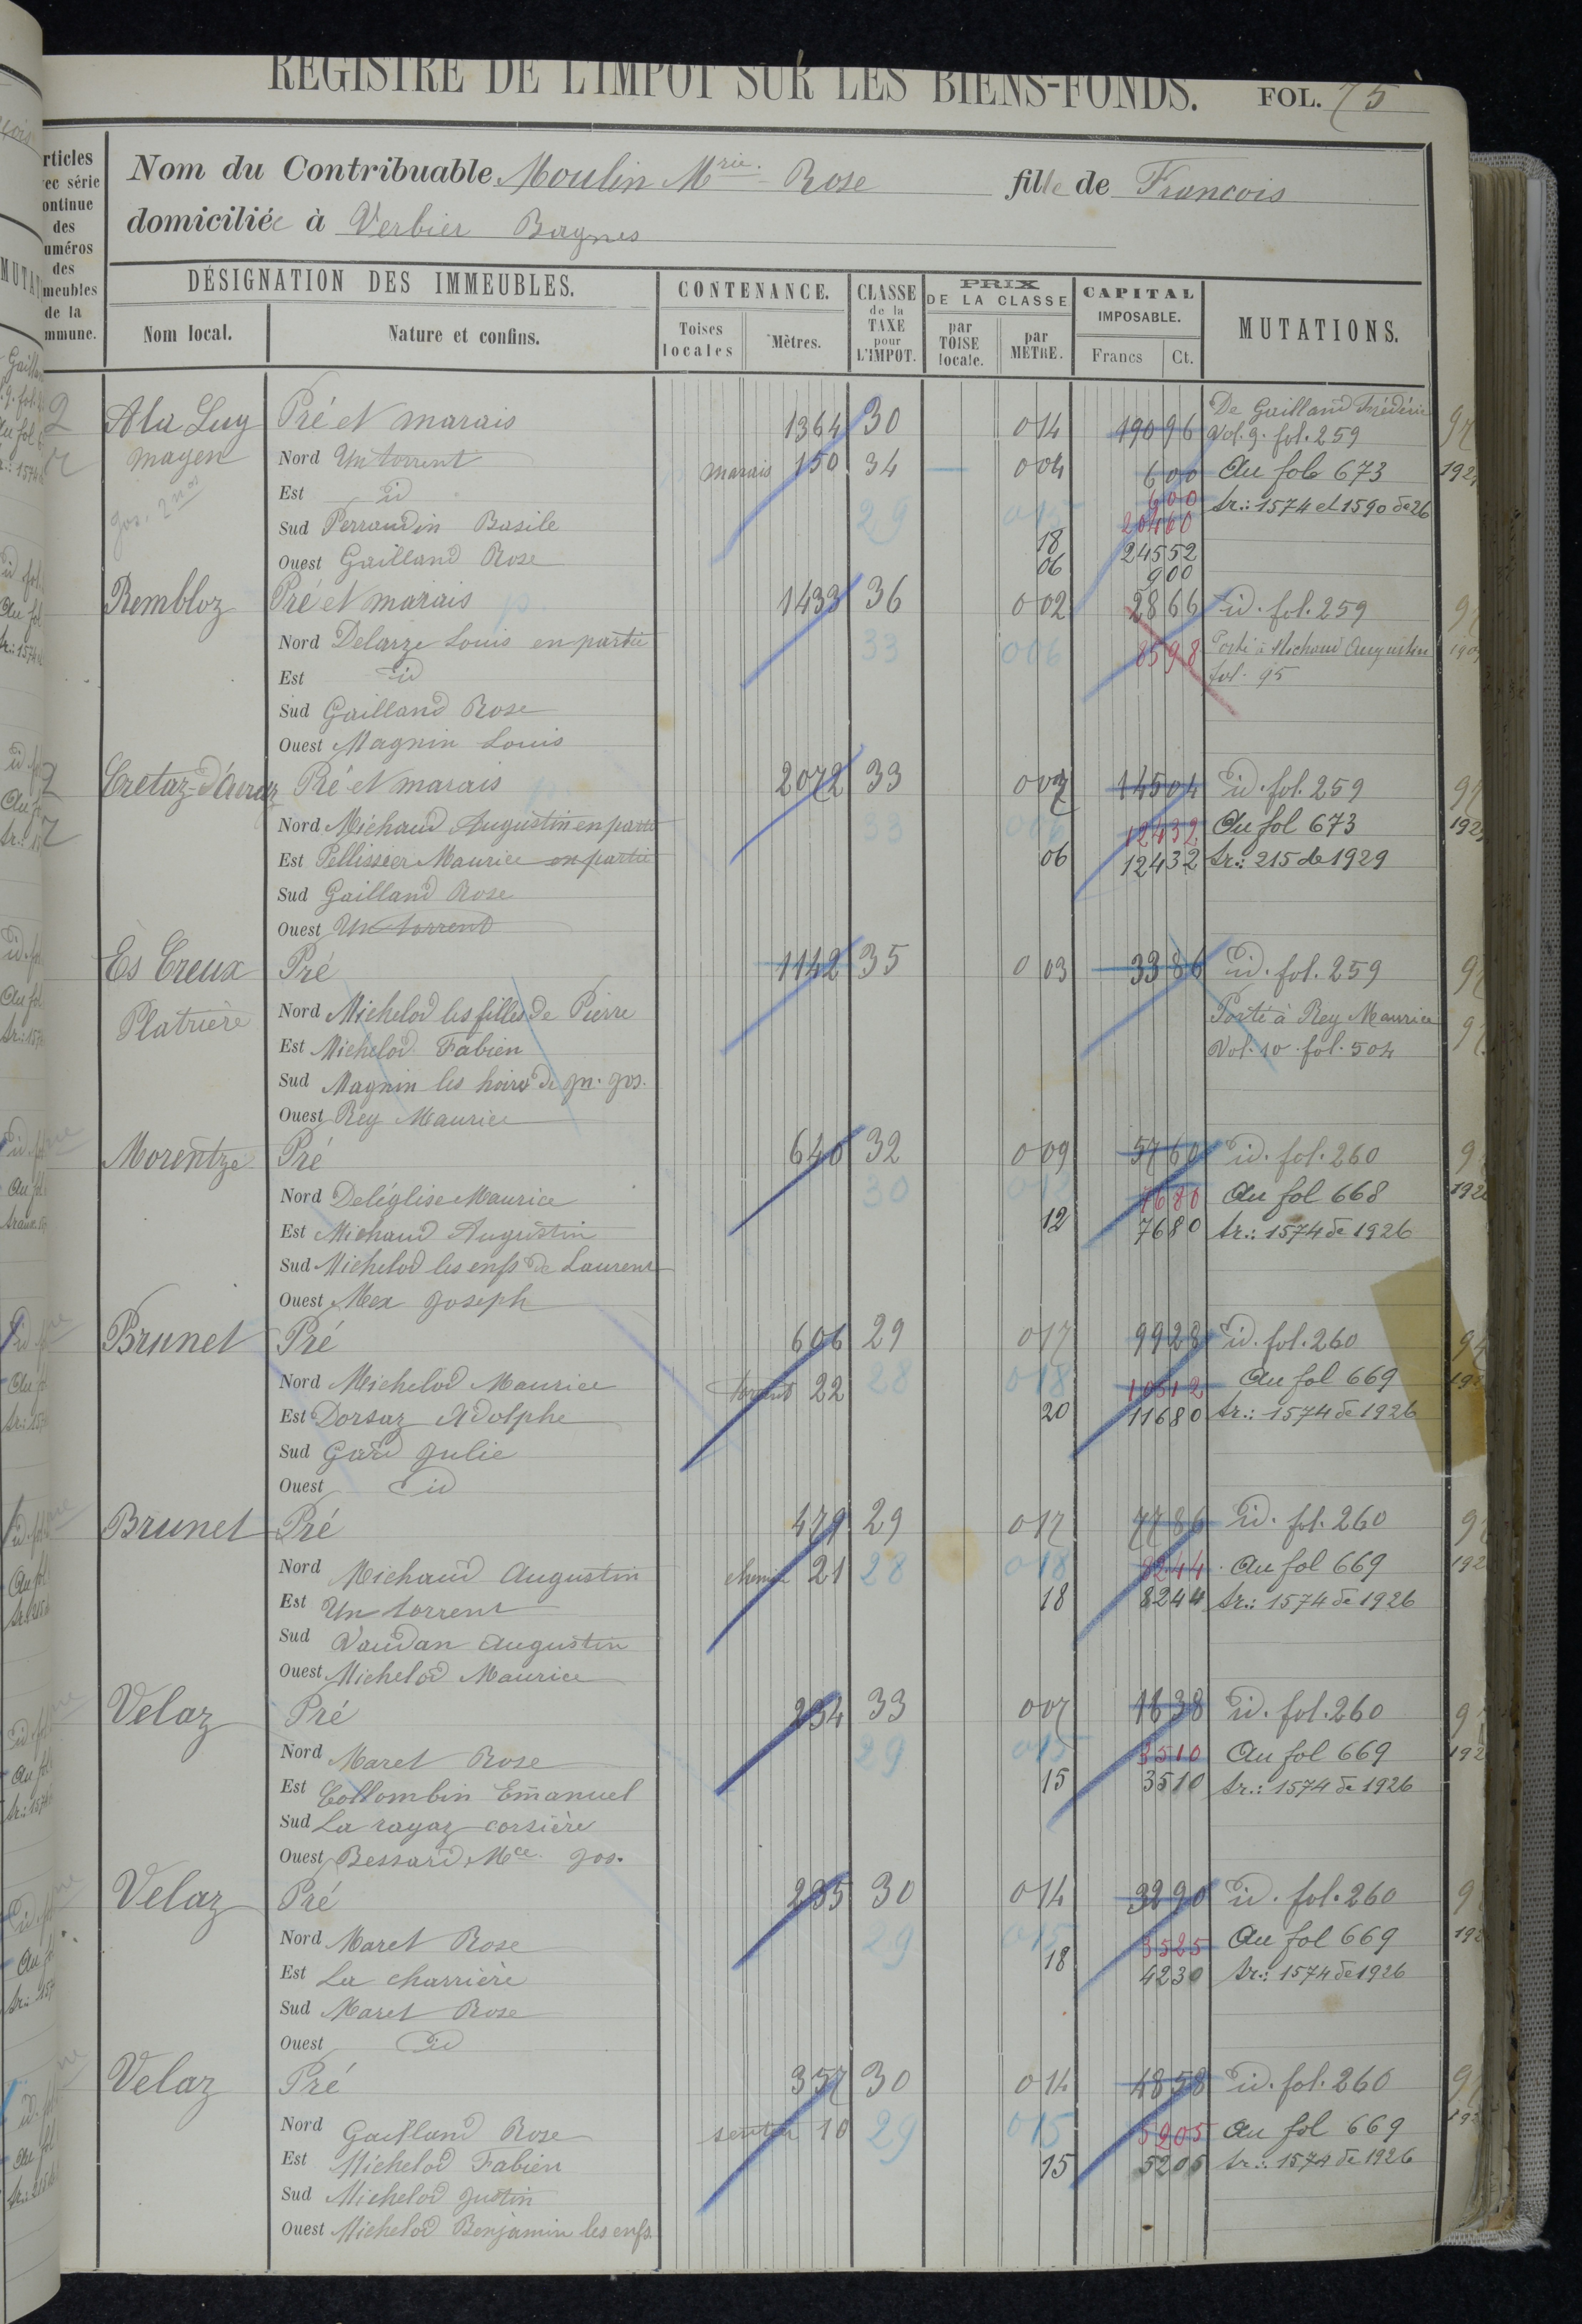 REGISTRE DE L'IMPOT SUR LES BIENS-FONDS. FOL. 75
Nom du Contribuable Moulin Mrie. Rose fille de Francois
domiciliée à Verbier Bagnes
rticles
ec série
ontinue
des
uméros
des
meubles
de la
mmune.
DÉSIGNATION DES IMMEUBLES.
Nom local. Nature et confins.
CONTENANCE.
Toises locales Mètres.
CLASSE de la TAXE pour L'IMPOT.
PRIX DE LA CLASSE
par TOISE locale. par MÈTRE.
CAPITAL IMPOSABLE.
Francs Ct.
MUTATIONS.
A la Luy Pré et marais 1364 30 0 14 190 96 De Gailland Frédéric
Vol. 9. fol. 259
mayen Nord Un torrent marais 150 34 0 04 6 00 Au fol 673
Est id 6 00 tr.: 1574 et 1590 de 26
Sud Perraudin Basile 29 0 15 204 60
Ouest Gailland Rose 18 245 52
06 9 00
Rembloz Pré et marais 1433 36 0 02 28 66 id. fol. 259
Nord Delarze Louis en partie 33 0 06 85 98 Porté à Michaud Augustin
Est id fol. 95
Sud Gailland Rose
Ouest Magnin Louis
Cretaz-d'Aveaz Pré et marais 2072 33 0 07 145 04 id. fol. 259
Nord Michaud Augustin en partie 33 0 06 124 32 Au fol 673
Est Pellissier Maurice en partie 06 124 32 tr.: 215 de 1929
Sud Gailland Rose
Ouest Un torrent
Es Creux Pré 1142 35 0 03 33 86 id. fol. 259
Platrière Nord Michelod les filles de Pierre Porté à Rey Maurice
Est Michelod Fabien Vol. 10. fol. 504
Sud Magnin les hoirs de Jn. Jos.
Ouest Rey Maurice
Morentze Pré 640 32 0 09 57 60 id. fol. 260
Nord Deléglise Maurice 30 0 12 76 80 Au fol 668
Est Michaud Augustin 12 76 80 tr.: 1574 de 1926
Sud Michelod les enfs de Laurent
Ouest Mex Joseph
Brunet Pré 606 29 0 17 99 28 id. fol. 260
Nord Michelod Maurice torrent 22 28 0 18 105 12 Au fol 669
Est Dorsaz Adolphe 20 116 80 tr.: 1574 de 1926
Sud Gard Julie
Ouest id
Brunet Pré 479 29 0 17 77 86 id. fol. 260
Nord Michaud Augustin chemin 21 28 0 18 82 44 Au fol 669
Est Un torrent 18 82 44 tr.: 1574 de 1926
Sud Vaudan Augustin
Ouest Michelod Maurice
Velaz Pré 234 33 0 07 16 38 id. fol. 260
Nord Maret Rose 29 0 15 35 10 Au fol 669
Est Collombin Emanuel 15 35 10 tr.: 1574 de 1926
Sud La rayaz corsière
Ouest Bessard Mce. Jos.
Velaz Pré 235 30 0 14 32 90 id. fol. 260
Nord Maret Rose 29 0 15 35 25 Au fol 669
Est La charrière 18 42 30 tr.: 1574 de 1926
Sud Maret Rose
Ouest id
Velaz Pré 357 30 0 14 48 58 id. fol. 260
Nord Gailland Rose sentier 10 29 0 15 52 05 Au fol 669
Est Michelod Fabien 15 52 05 tr.: 1574 de 1926
Sud Michelod Justin
Ouest Michelod Benjamin les enfs.